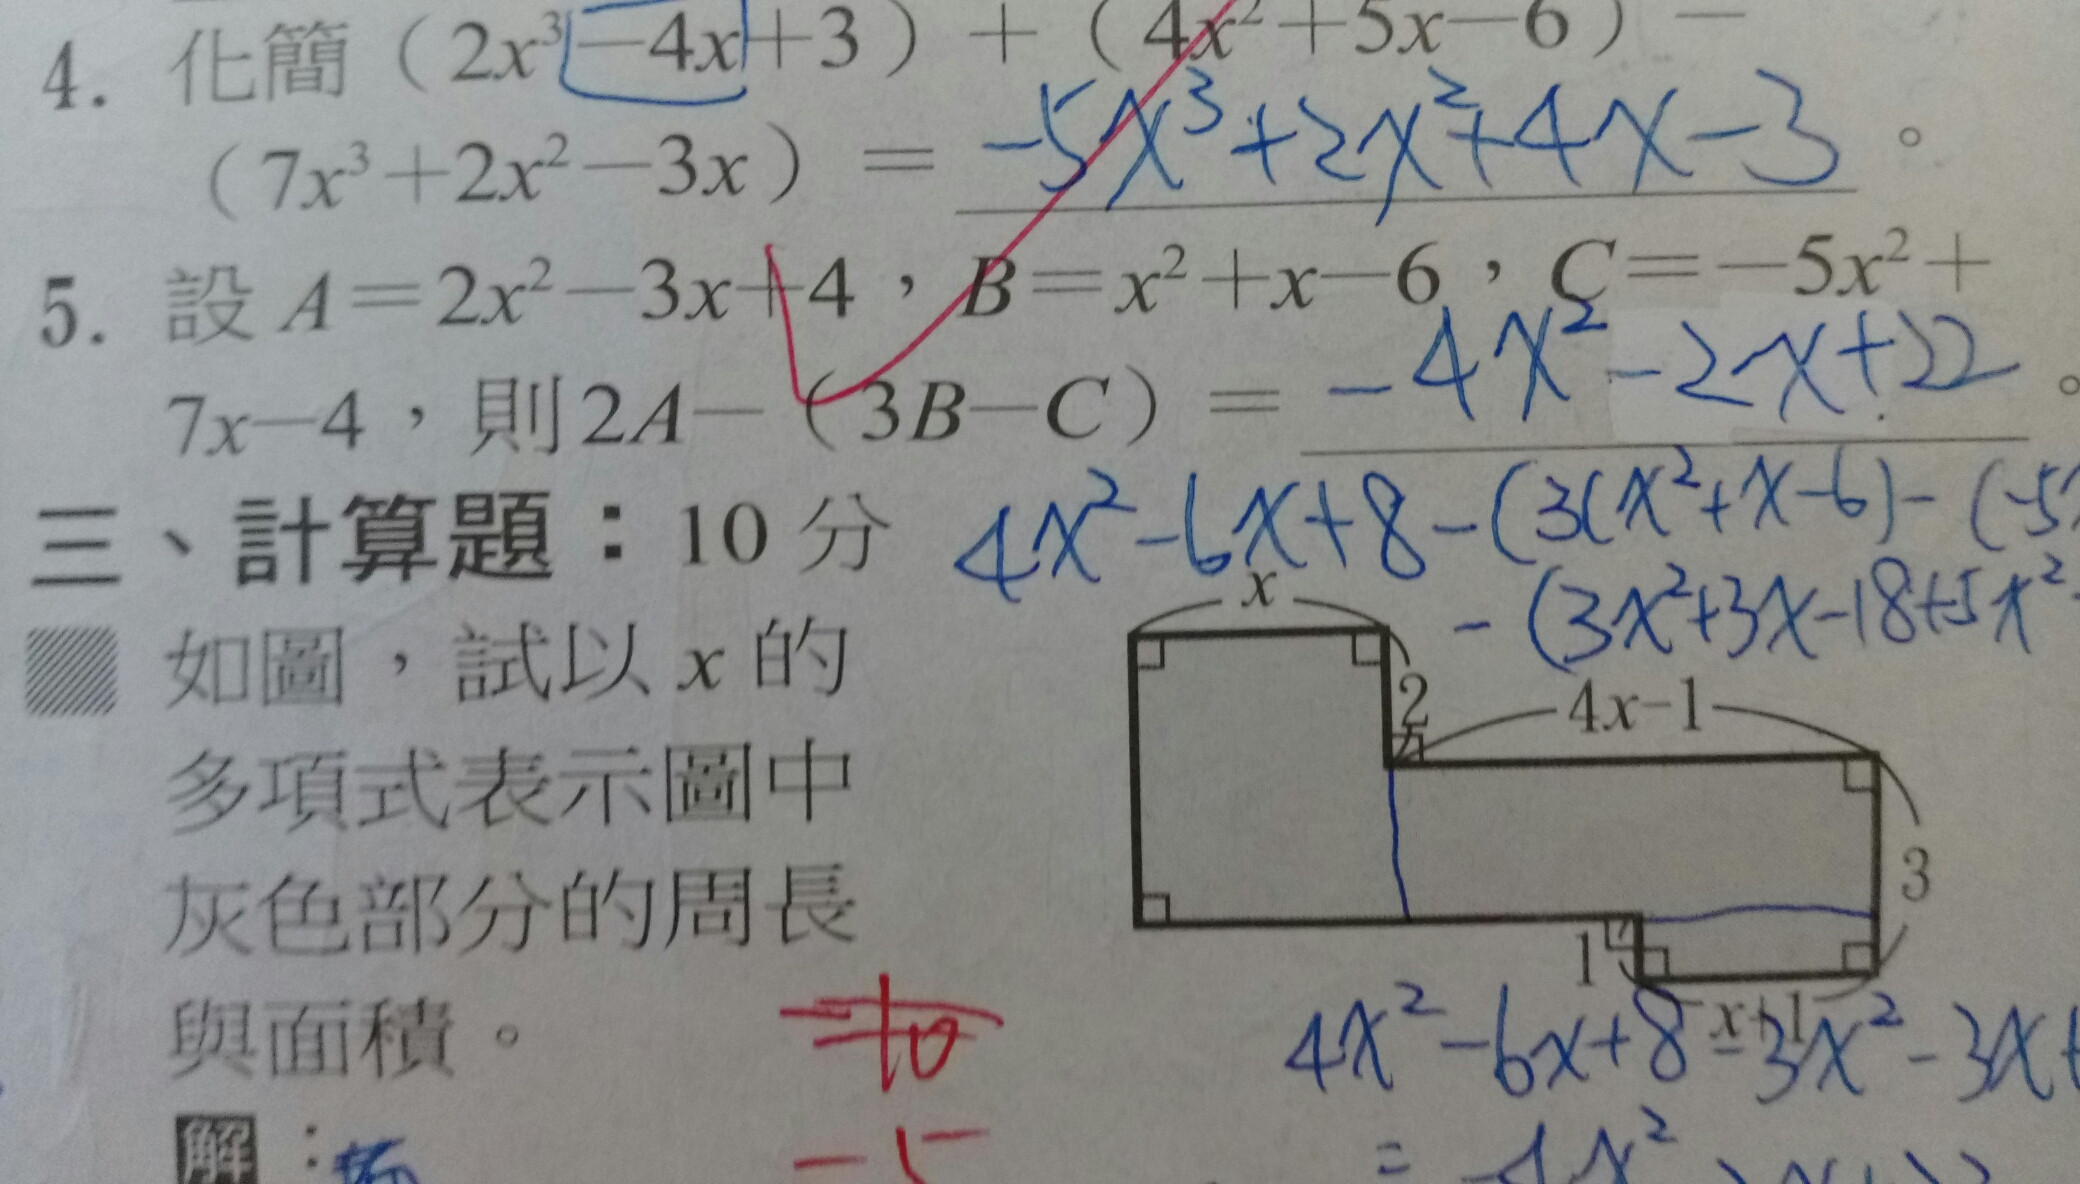 4. 化簡（2x³－4x＋3）＋（4x²＋5x－6）－
（7x³＋2x²－3x）＝ -5x³+2x²+4x-3 。
5. 設 A＝2x²－3x＋4，B＝x²＋x－6，C＝－5x²＋
7x－4，則2A－（3B－C）＝ -4x²-2x+22 。
4x²-6x+8-(3(x²+x-6)-(-5
-(3x²+3x-18+5x²
三、計算題：10 分
如圖，試以 x 的
多項式表示圖中
灰色部分的周長
與面積。
x
2
4x-1
3
1
x+1
4x²-6x+8-3x²-3x+
-10
-5
= -4x²
解：